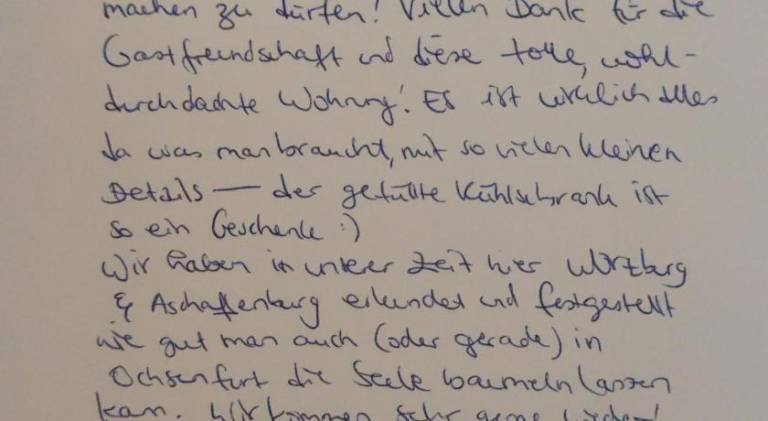 machen zu dürfen! Vielen Dank für die
Gastfreundschaft und diese tolle, wohl-
durchdachte Wohnung! Es ist wirklich alles
da was man braucht, mit so vielen kleinen
Details — der gefüllte Kühlschrank ist
so ein Geschenk :)
Wir haben in unserer Zeit hier Würzburg
& Aschaffenburg erkundet und festgestellt
wie gut man auch (oder gerade) in
Ochsenfurt die Seele baumeln lassen
kann. Wir kommen sehr gerne wieder!